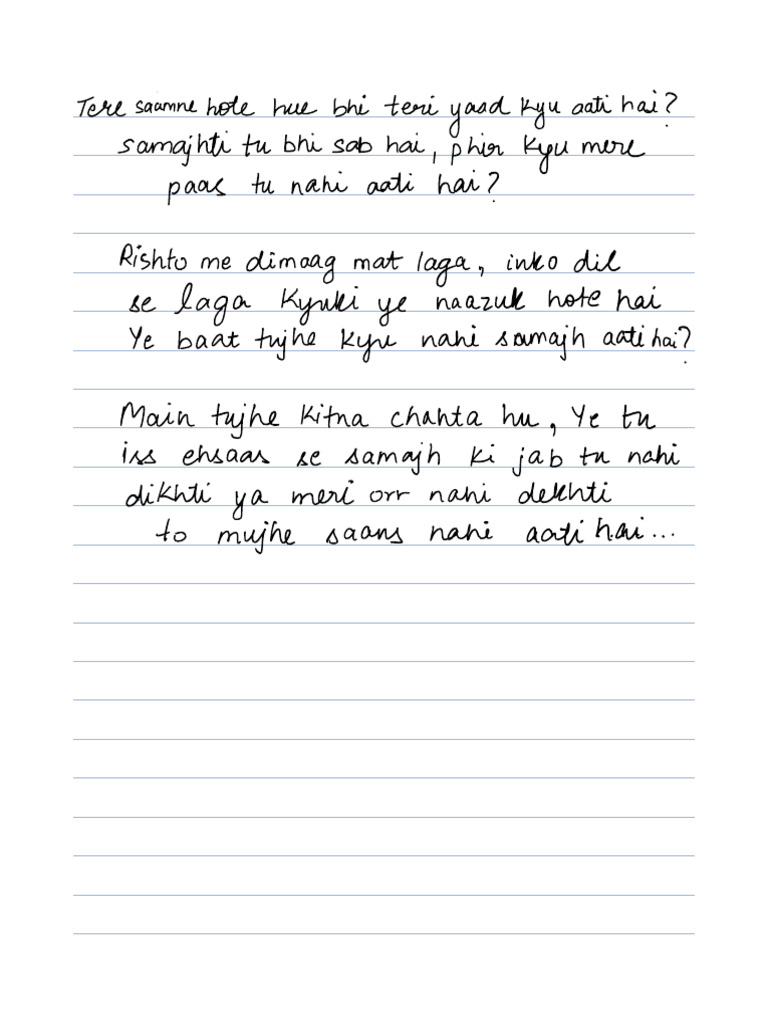 Tere saamne hote hue bhi teri yaad kyu aati hai?
samajhti tu bhi sab hai, phir kyu mere
paas tu nahi aati hai?
Rishto me dimaag mat laga, inko dil
se laga kyuki ye naazuk hote hai
Ye baat tujhe kyu nahi samajh aati hai?
Main tujhe kitna chahta hu, Ye tu
iss ehsaas se samajh ki jab tu nahi
dikhti ya meri orr nahi dekhti
to mujhe saans nahi aati hai...